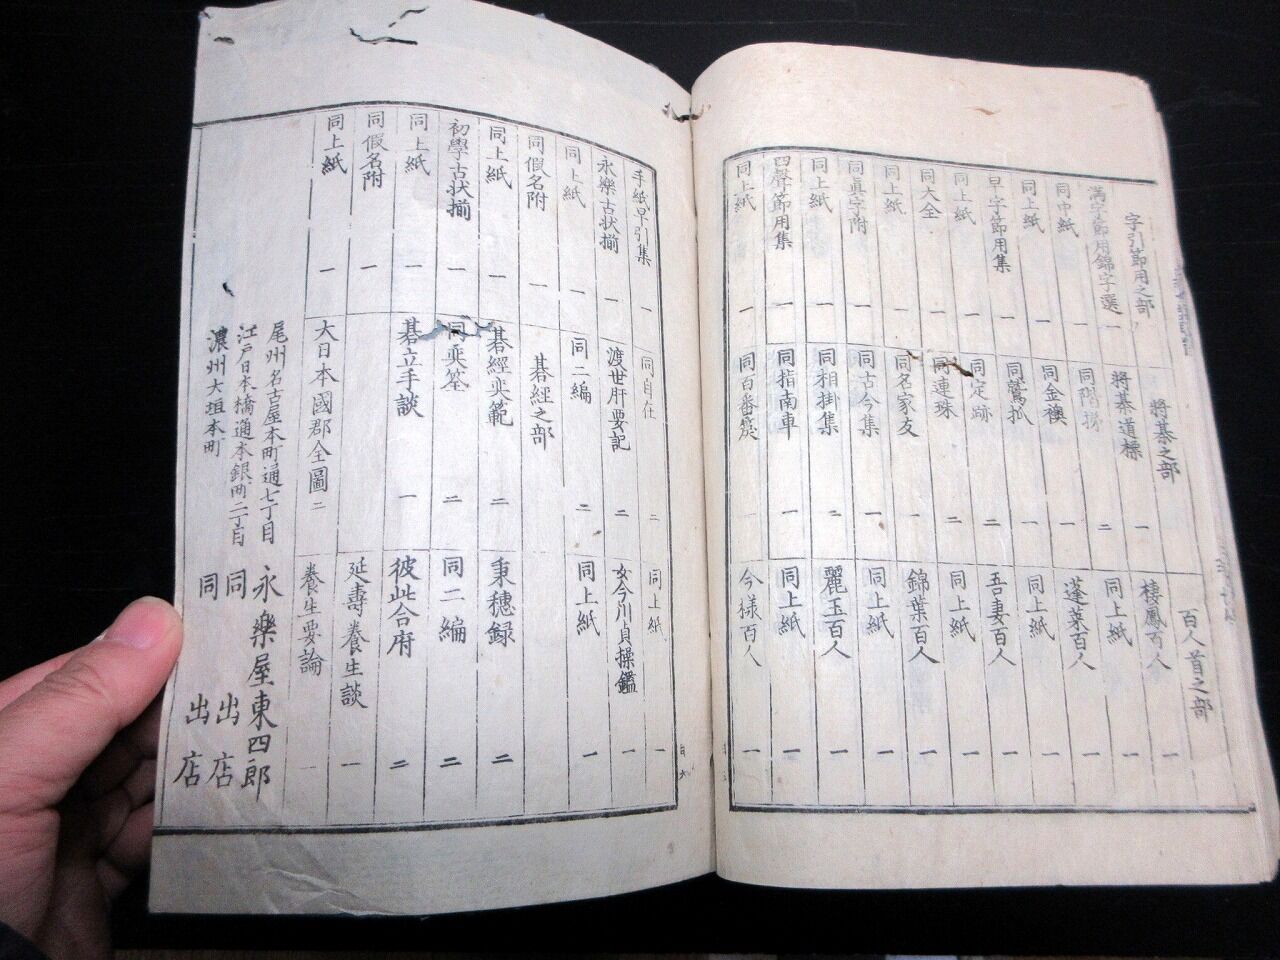 字引節用之部
満字節用錦字選 一
同中紙 一
同上紙 一
早字節用集 一
同上紙 一
同大全 一
同上紙 一
同眞字附 一
同上紙 一
四聲節用集 一
同上紙 一
将棊之部
将棊道標 一
二
同金襖 一
同鷲抓 一
同定跡 二
同連珠 二
同名家友 一
同古今集 一
同相掛集 二
同指南車 一
同百番箋 一
百人首之部
棲鳳百人 一
同上紙 一
蓬莱百人 一
同上紙 一
吾妻百人 一
同上紙 一
錦葉百人 一
同上紙 一
麗玉百人 二
同上紙 一
今様百人 一
手紙早引集 一
永樂古状揃 一
同上紙 一
同假名附 一
同上紙 一
初學古状揃 一
同上紙 一
同假名附 一
同上紙 一
同自仕 二
渡世肝要記 二
同二編 二
碁經之部
碁經奕範 二
同奕筌 二
碁立手談 一
大日本國郡全圖 二
同上紙 一
女今川貞操鑑 一
同上紙 一
秉穂録 二
同二編 二
彼此合府 二
延壽養生談 一
養生要論 一
尾州名古屋本町通七丁目 永樂屋東四郎
江戸日本橋通本銀町二丁目 同出店
濃州大垣本町 同出店